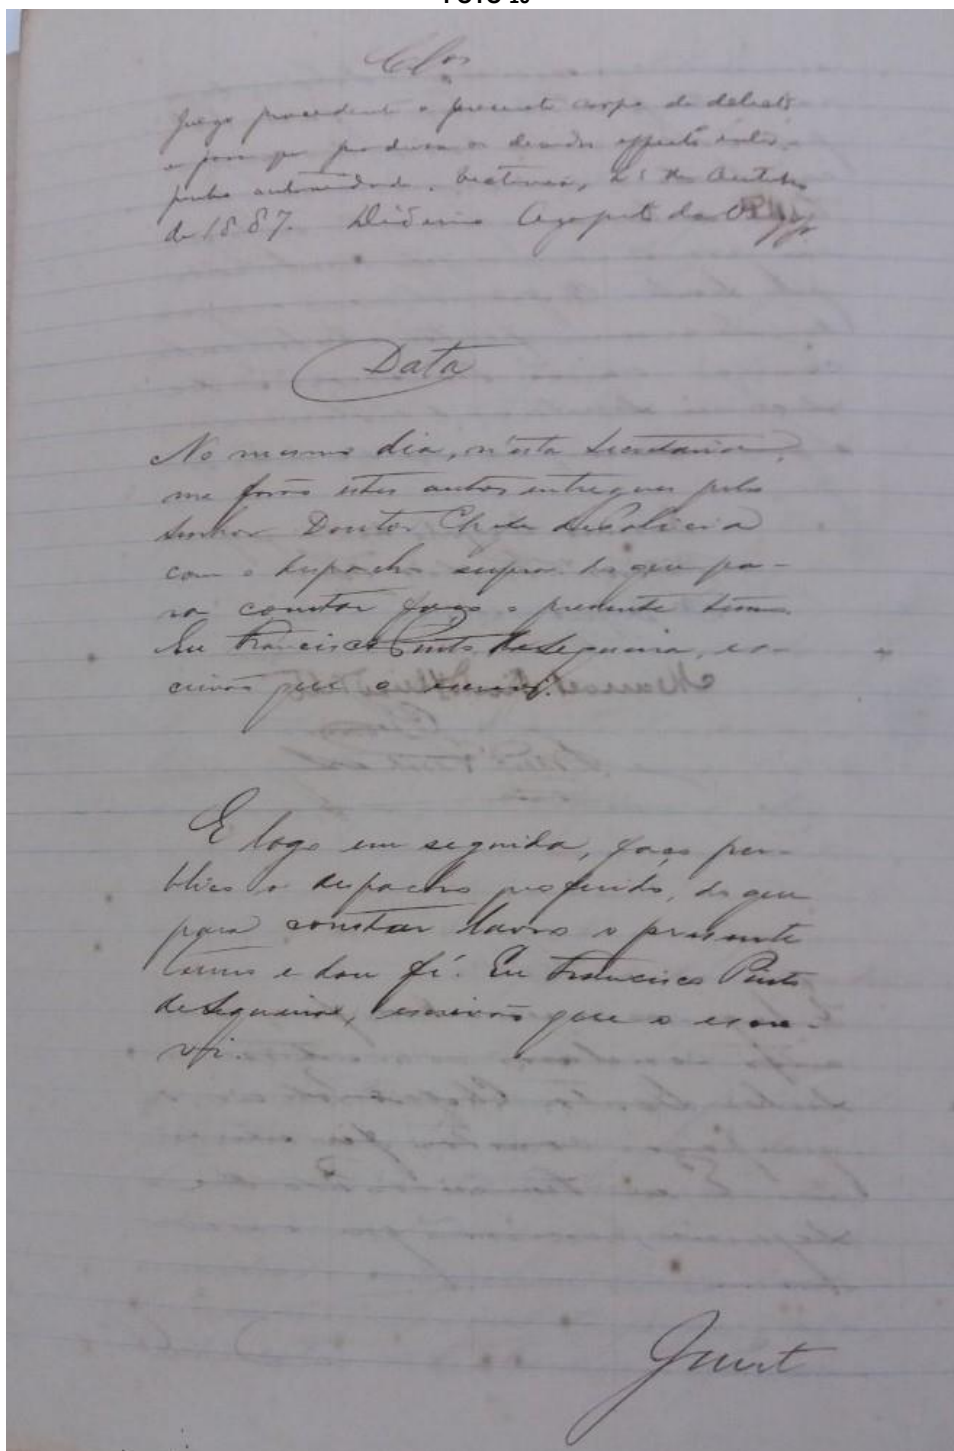 FOTO 10
Cl.os
Julgo procedente o presente corpo de delicto
e para que produza os devidos effeitos
autoridade. 21 de Outubro
de 1887. Agapito da Veiga Jr.
Data
No mesmo dia, n'esta Secretaria,
me forão estes autos entregues pelo
Senhor Doutor Chefe de Policia
com o despacho supra. do que pa-
ra constar faço o presente termo.
Eu Francisco Pinto de Sequeira, es-
crivão que o escrevi.
E logo em seguida, faço pu-
blico o despacho proferido, do que
para constar lavro o presente
termo e dou fé. Eu Francisco Pinto
de Sequeira, escrivão que o escre-
vi.
Junt